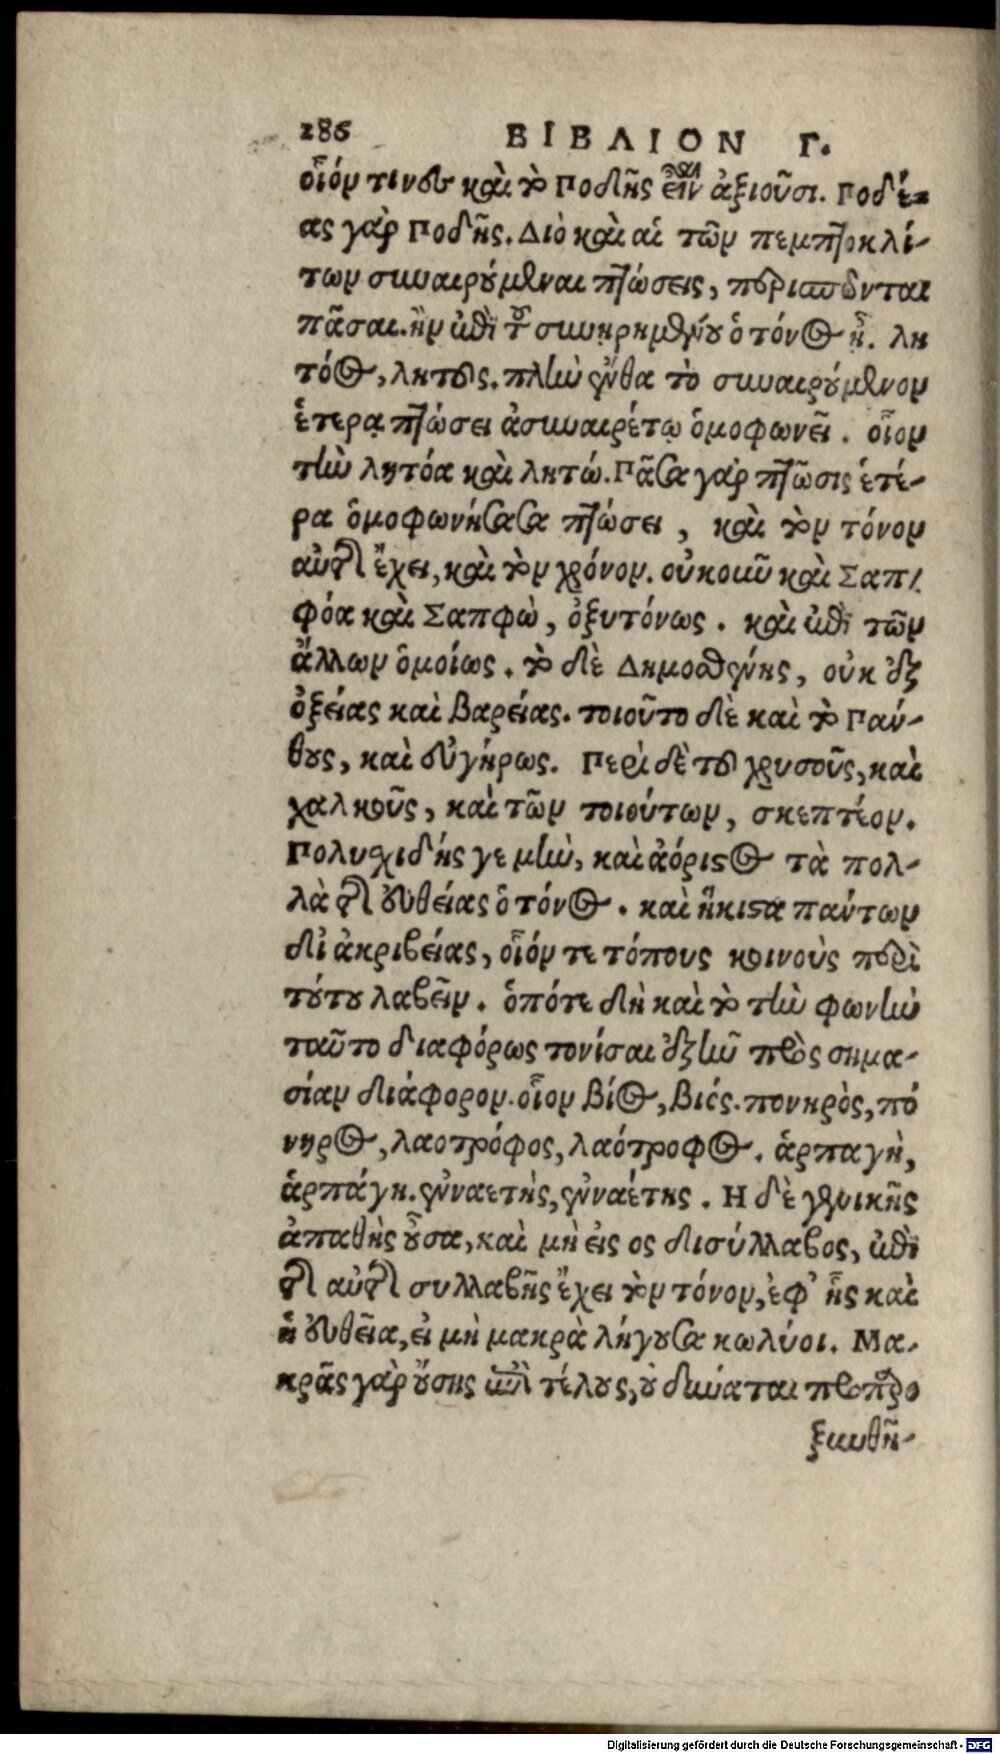 286 ΒΙΒΛΙΟΝ Γ.
οἷόν τινες καὶ τὸ Ποδῆς εἶναι ἀξιοῦσι. Ποδέ-
ας γὰρ Ποδῆς. Διὸ καὶ αἱ τῶν πεμπτοκλί-
των συναιρούμεναι πτώσεις, περισπῶνται
πᾶσαι. ἢν ἐπὶ τοῦ συνῃρημένου ὁ τόνος ᾖ. λη
τόος, λητοῦς. πλὴν ἔνθα τὸ συναιρούμενον
ἑτέρᾳ πτώσει ἀσυναιρέτῳ ὁμοφωνεῖ. οἷον
τὴν λητόα καὶ λητώ. Πᾶσα γὰρ πτῶσις ἑτέ-
ρα ὁμοφωνήσασα πτώσει, καὶ τὸν τόνον
αὐτῆς ἔχει, καὶ τὸν χρόνον. οὐκοῦν καὶ Σαπ-
φόα καὶ Σαπφὼ, ὀξυτόνως. καὶ ἐπὶ τῶν
ἄλλων ὁμοίως. τὸ δὲ Δημοσθένης, οὐκ ἐξ
ὀξείας καὶ βαρείας. τοιοῦτο δὲ καὶ τὸ Πάν-
θους, καὶ εὐγήρως. Περὶ δὲ τοῦ χρυσοῦς, καὶ
χαλκοῦς, καὶ τῶν τοιούτων, σκεπτέον.
Πολυσχιδής γε μὴν, καὶ ἀόριστος τὰ πολ-
λὰ τῆς εὐθείας ὁ τόνος. καὶ ἥκιστα πάντων
δι ἀκριβείας, οἷόν τε τόπους κοινοὺς περὶ
τούτου λαβεῖν. ὁπότε δὴ καὶ τὸ τὴν φωνὴν
ταὐτο διαφόρως τονίσαι ἐξῆν πρὸς σημα-
σίαν διάφορον. οἷον βίος, βιός. πονηρὸς, πό
νηρος, λαοτρόφος, λαότροφος. ἁρπαγὴ,
ἁρπάγη. ἐνναετὴς, ἐνναέτης. Η δὲ γενικῆς
ἀπαθὴς οὖσα, καὶ μὴ εἰς ος δισύλλαβος, ἐπὶ
τῆς αὐτῆς συλλαβῆς ἔχει τὸν τόνον, ἐφ᾽ ἧς καὶ
ἡ εὐθεῖα, εἰ μὴ μακρὰ λήγουσα κωλύοι. Μα-
κρᾶς γὰρ οὔσης ἐπὶ τέλους, οὐ δύναται προπαρο
ξυνθῆ-
Digitalisierung gefördert durch die Deutsche Forschungsgemeinschaft - DFG